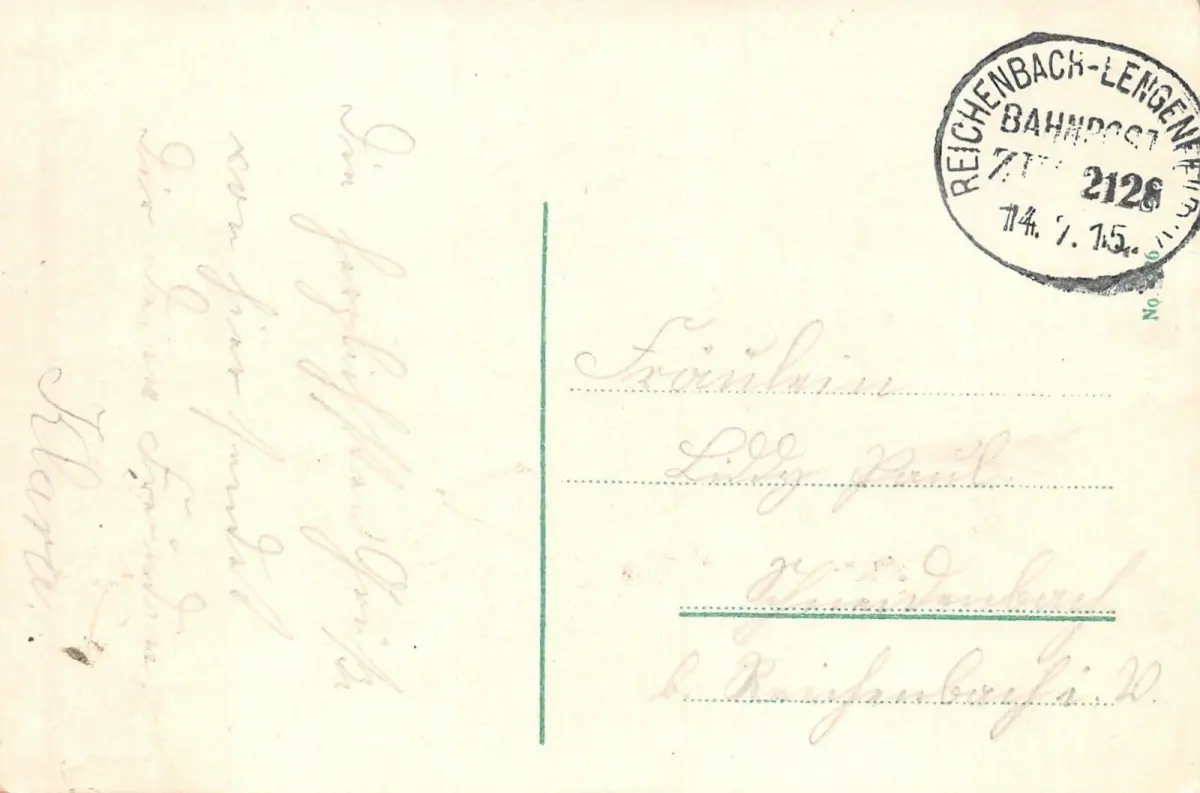 Ein herzlichsten Gruß
von hier sendet
Dir Deine Freundin
Klara.
REICHENBACH-LENGENFELD
BAHNPOST
ZUG 2128
14.7.15.
No.
Fräulein
Liddy Paul.
Schneidenbach
b. Reichenbach i. V.